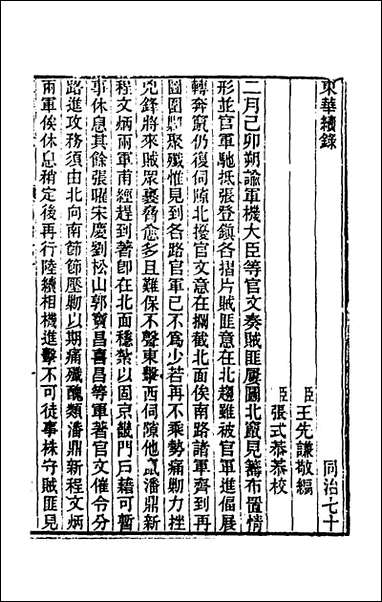 東華續錄　同治七十
臣王先謙敬編
臣張式恭恭校
二月己卯朔諭軍機大臣等官文奏賊匪屢圖北竄見籌布置情
形並官軍馳抵張登鎮各摺片賊匪意在北趨雖被官軍進偪展
轉奔竄仍復伺隙北擾官文意在攔截北面俟南路諸軍齊到再
圖圍勦聚殲惟見到各路官軍已不為少若再不乘勢痛勦力挫
兇鋒將來賊眾裹脅愈多且難保不聲東擊西伺隙他竄潘鼎新
程文炳兩軍甫經趕到著卽在北面穩紮以固京畿門戶藉可暫
事休息其餘張曜宋慶劉松山郭寶昌喜昌等軍著官文催令分
路進攻務須由北向南節節壓勦以期痛殲醜類潘鼎新程文炳
兩軍俟休息稍定後再行陸續相機進擊不可徒事株守賊匪見